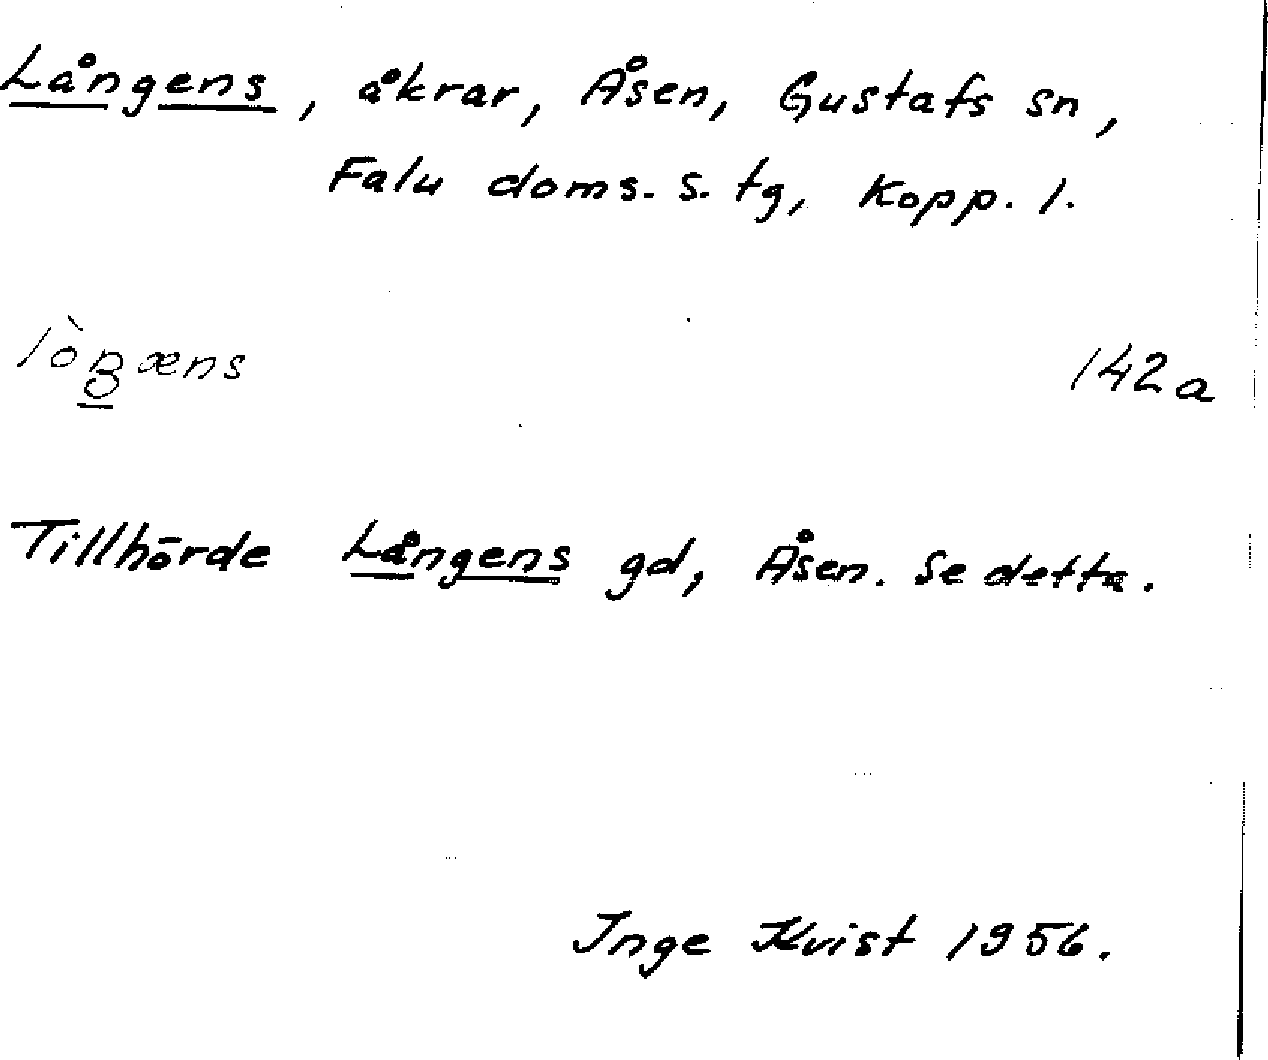 Långens, åkrar, Åsen, Gustafs sn,
Falu doms. s. tg, Kopp. l.
142a
Tillhörde Långens gd, Åsen. Se detta.
Inge Kvist 1956.